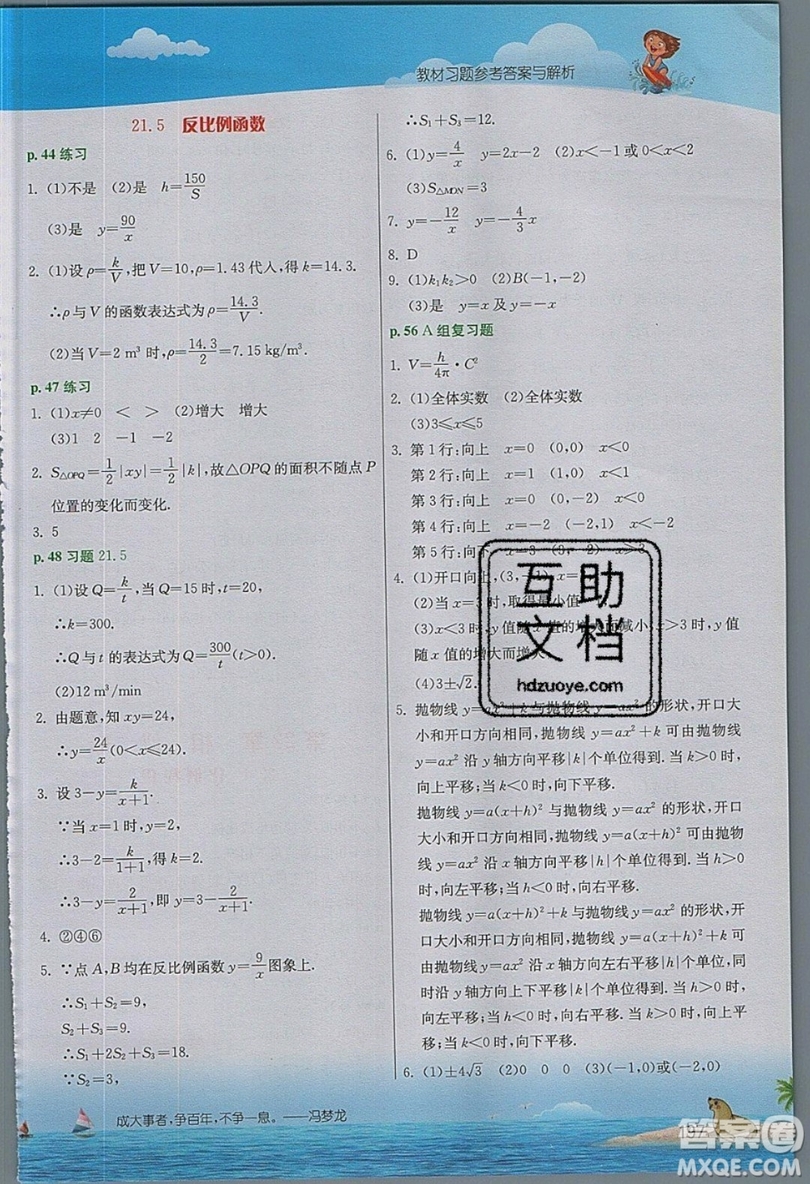 教材习题参考答案与解析
21.5 反比例函数
p.44 练习
1. (1)不是 (2)是 h=150/S
(3)是 y=90/x
2. (1)设ρ=k/V,把V=10,ρ=1.43代入,得k=14.3.
∴ρ与V的函数表达式为ρ=14.3/V.
(2)当V=2 m³时,ρ=14.3/2=7.15 kg/m³.
p.47 练习
1. (1)x≠0 < > (2)增大 增大
(3)1 2 -1 -2
2. S△OPQ=1/2|xy|=1/2|k|,故△OPQ的面积不随点P
位置的变化而变化.
3. 5
p.48 习题21.5
1. (1)设Q=k/t,当Q=15时,t=20,
∴k=300.
∴Q与t的表达式为Q=300/t(t>0).
(2)12 m³/min
2. 由题意,知xy=24,
∴y=24/x(0<x≤24).
3. 设3-y=k/(x+1).
∵当x=1时,y=2,
∴3-2=k/(1+1),得k=2.
∴3-y=2/(x+1),即y=3-2/(x+1).
4. ②④⑥
5. ∵点A,B均在反比例函数y=9/x图象上.
∴S₁+S₂=9,
S₂+S₃=9.
∴S₁+2S₂+S₃=18.
∵S₂=3,
∴S₁+S₃=12.
6. (1)y=4/x y=2x-2 (2)x<-1或0<x<2
(3)S△MON=3
7. y=-12/x y=-4/3x
8. D
9. (1)k₁k₂>0 (2)B(-1,-2)
(3)是 y=x及y=-x
p.56 A组复习题
1. V=h/4π·C²
2. (1)全体实数 (2)全体实数
(3)3≤x≤5
3. 第1行:向上 x=0 (0,0) x<0
第2行:向上 x=0 (0,1) x<0
第3行:向上 x=-2 (-2,0) x<-2
第4行:向上 x=-2 (-2,1) x<-2
第5行:向下 x=3 (3,-2) x>3
4. (1)开口向上,(3, x=
(2)当x=3时,取得最小值
(3)x<3时,y值随x值的增大而减小,x>3时,y值
随x值的增大而增大.
(4)3±√2.
5. 抛物线y=ax²+k与抛物线y=ax²的形状,开口大
小和开口方向相同,抛物线y=ax²+k可由抛物线
y=ax²沿y轴方向平移|k|个单位得到.当k>0时,
向上平移;当k<0时,向下平移.
抛物线y=a(x+h)²与抛物线y=ax²的形状,开口
大小和开口方向相同,抛物线y=a(x+h)²可由抛物
线y=ax²沿x轴方向平移|h|个单位得到.当h>0
时,向左平移;当h<0时,向右平移.
抛物线y=a(x+h)²+k与抛物线y=ax²的形状,开
口大小和开口方向相同,抛物线y=a(x+h)²+k可
由抛物线y=ax²沿x轴左右平移|h|个单位,然后再
沿y轴方向上下平移|k|个单位得到.当h>0时,
向左平移;当h<0时,向右平移.当k>0时,向上平
移;当k<0时,向下平移.
6. (1)±4√3 (2)0 0 0 (3)(-1,0)或(-2,0)
互助
文档
hdzuoye.com
成大事者,争百年,不争一息。——冯梦龙
197
答案圈
MXQE.COM